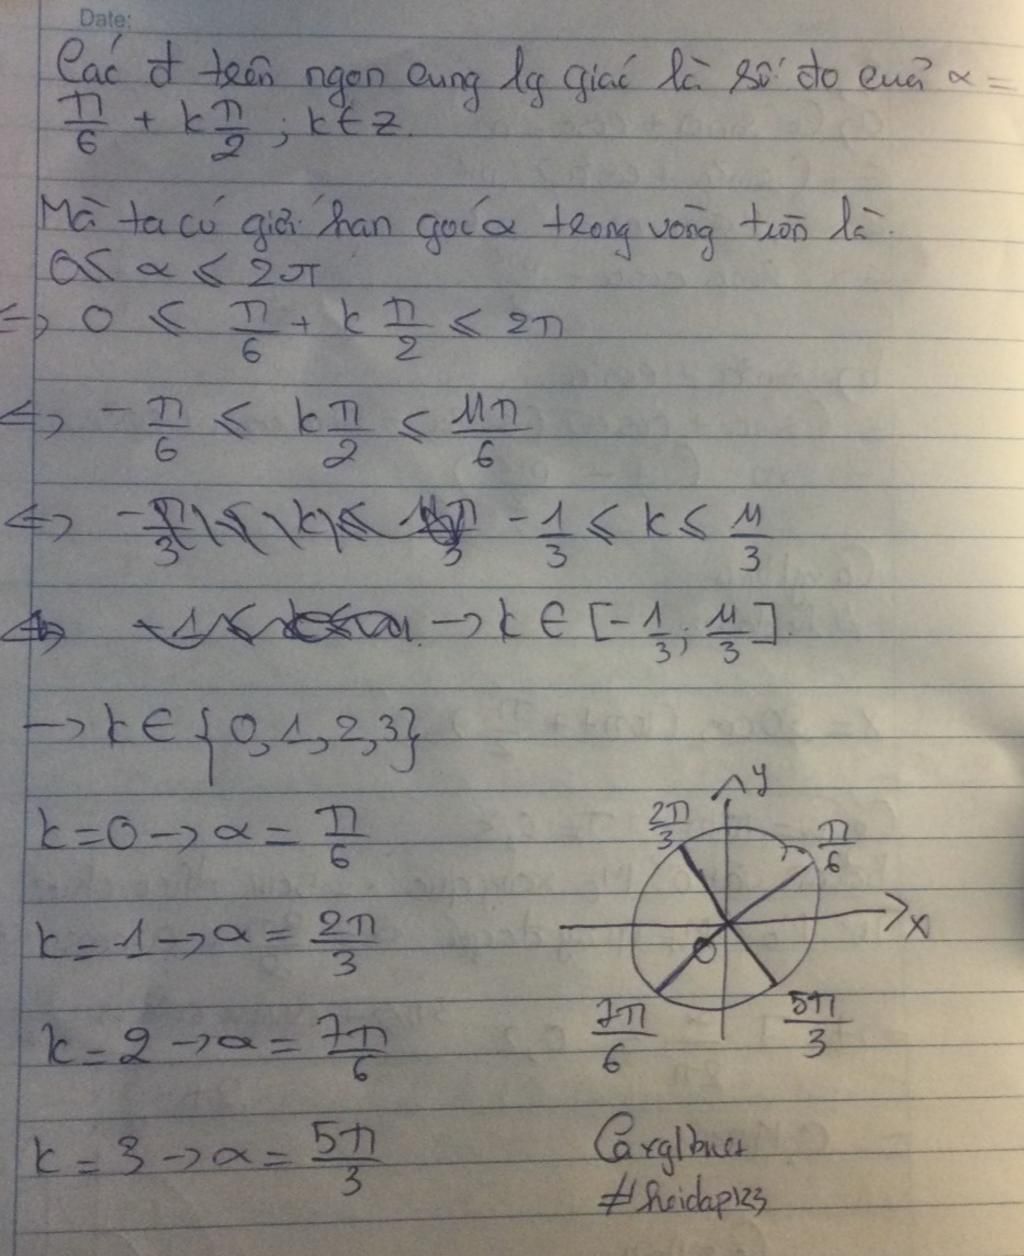 Date:
Các đ trên ngọn cung lg giác là số đo của α =
π/6 + k π/2 ; k ∈ Z.
Mà ta có giới hạn góc α trong vòng tròn là:
0 ≤ α ≤ 2π
=> 0 ≤ π/6 + k π/2 ≤ 2π
<=> -π/6 ≤ k π/2 ≤ 11π/6
<=> -1/3 ≤ k ≤ 11/3
→ k ∈ [-1/3; 11/3].
→ k ∈ {0, 1, 2, 3}
k = 0 → α = π/6
k = 1 → α = 2π/3
k = 2 → α = 7π/6
k = 3 → α = 5π/3
y
2π/3
π/6
x
O
7π/6
5π/3
#hoidap123